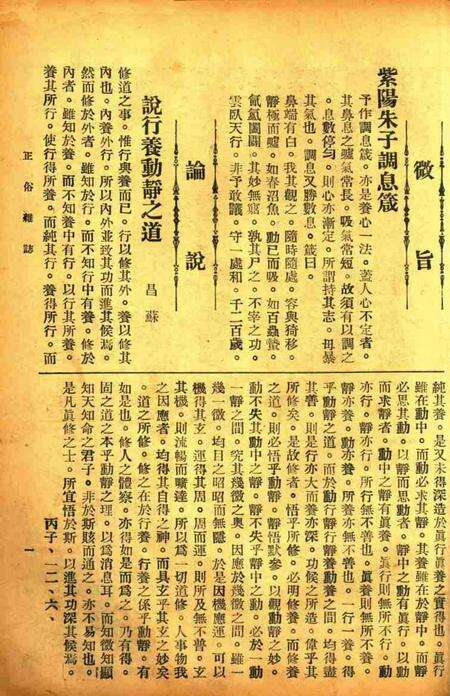 微旨
紫陽朱子調息箴
予作調息箴。亦是養心一法。蓋人心不定者。
其鼻息之噓氣常長。吸氣常短。故須有以調之
。息數停勻。則心亦漸定。所謂持其志。毋暴
其氣也。調息又勝數息。箴曰。
鼻端有白。我其觀之。隨時隨處。容與猗移。
靜極而噓。如春沼魚。動已而吸。如百蟲蟄。
氤氳闔闢。其妙無窮。孰其尸之。不宰之功。
雲臥天行。非予敢議。守一處和。千二百歲。
論說
說行養動靜之道
昌蘇
修道之事。惟行與養而已。行以修其外。養以修其
內也。內養外行。所以內外並致其功而進其候焉。
然而修於外者。雖知於行。而不知行中有養。修於
內者。雖知於養。而不知養中有行。以行其所養。
養其所行。使行得所養。而純其行。養得所行。而
正俗雜誌
純其養。是又未得深造於眞行眞養之實得也。眞行
雖在動中。而動必求其靜。其養雖在於靜中。而靜
必思其動。以靜而思動者。靜中之動有眞行。以動
而求靜者。動中之靜有眞養。眞行則無所不行。動
亦行。靜亦行。所行無不善也。眞養則無所不養。
靜亦養。動亦養。所養亦無不善也。一行一養。得
乎動靜之道。而於行養動靜行動養之間。均得盡
其善。則是行亦大而養亦深。功候之所造。偉乎其
所修矣。是故修者。悟乎所修。必明修養。而修養
之道。則必悟乎動靜。靜悟默參。以觀動靜之妙。
動不失其動中之靜。靜不失乎靜中之動。必於一動
一靜之間。究其幾微之奧。因應於幾微之間。雖一
幾一微。均日之昭昭而無隱。於是因機應運。可以
機得其玄。運得其周。周而運。則所及無不普。玄
其機。則流暢而曠達。所以爲一切道修。人事物我
之因應者。均得其自得之神。而具玄乎其玄之妙矣
。道之所修。修之在於行養。行養之係乎動靜。有
如是也。修人之體察。亦得如是而爲之。乃有得。
固之道之本乎動靜之理。以爲消息耳。而知微知顯
知天知命之君子。非於斯賅而通之。亦不易知也。
是凡眞修之士。所宜悟於斯。以進其功深其候焉。
丙子、一二、六、
一